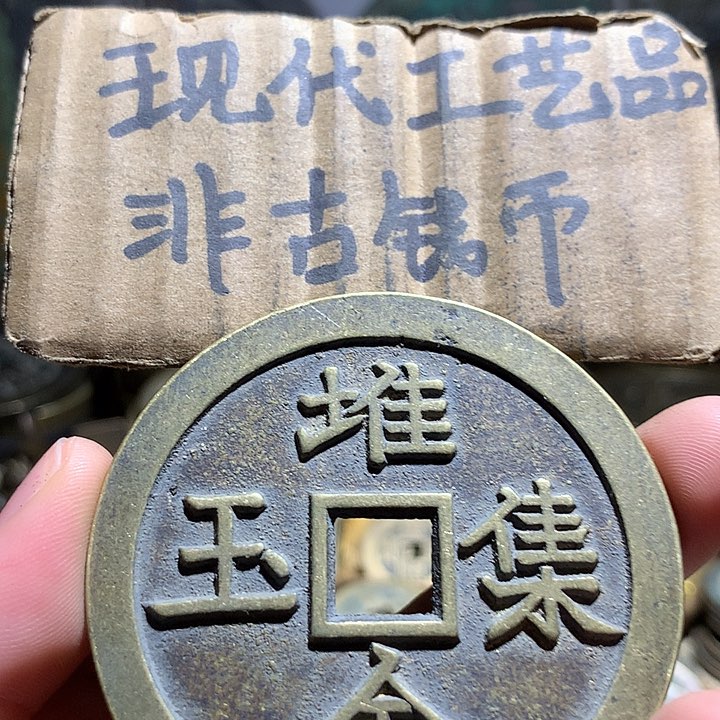 现代工艺品
非古钱币
堆金集玉